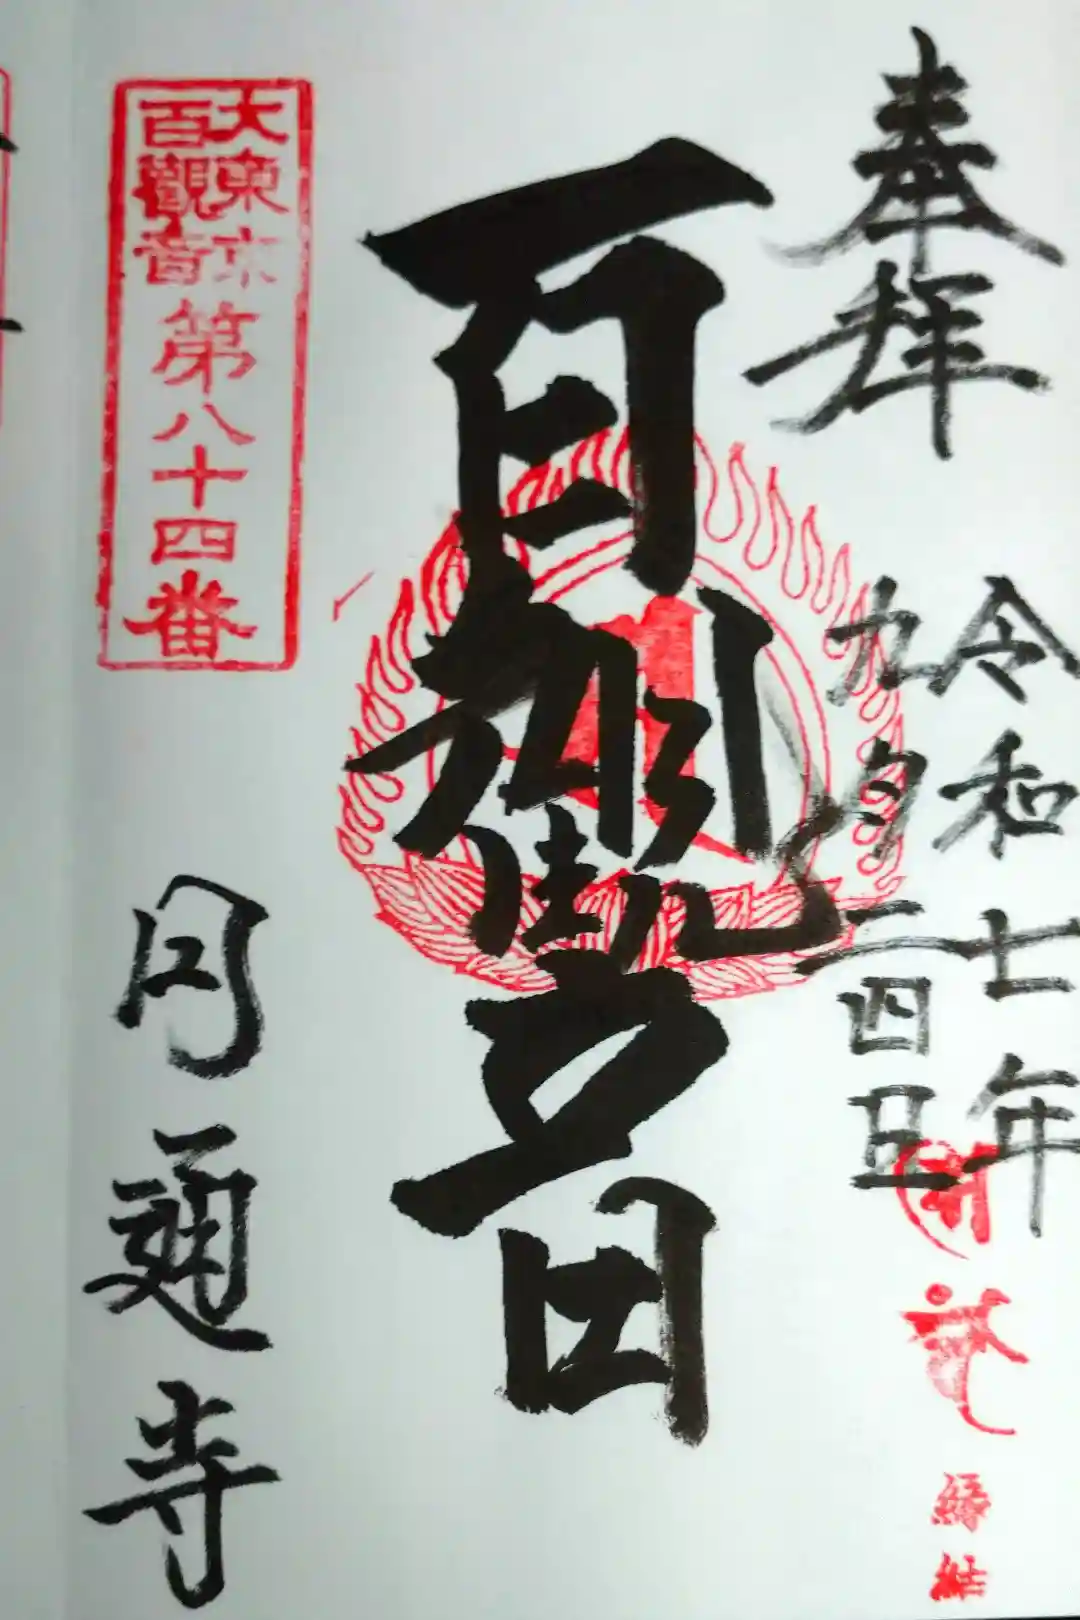 奉拝
令和七年
九月二四日
縁結
百觀音
大東京
百觀音
第八十四番
円通寺